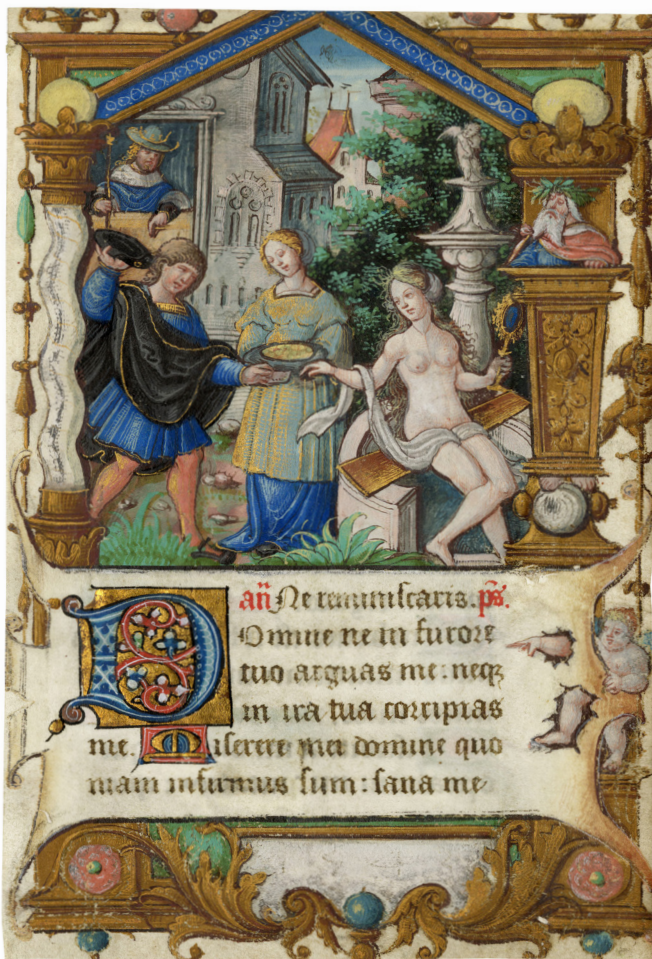 an̄ Ne reminiscaris. p̄s.
Domine ne in furore
tuo arguas me: neqꝫ
in ira tua corripias
me. Miserere mei domine quo
niam infirmus sum: sana me